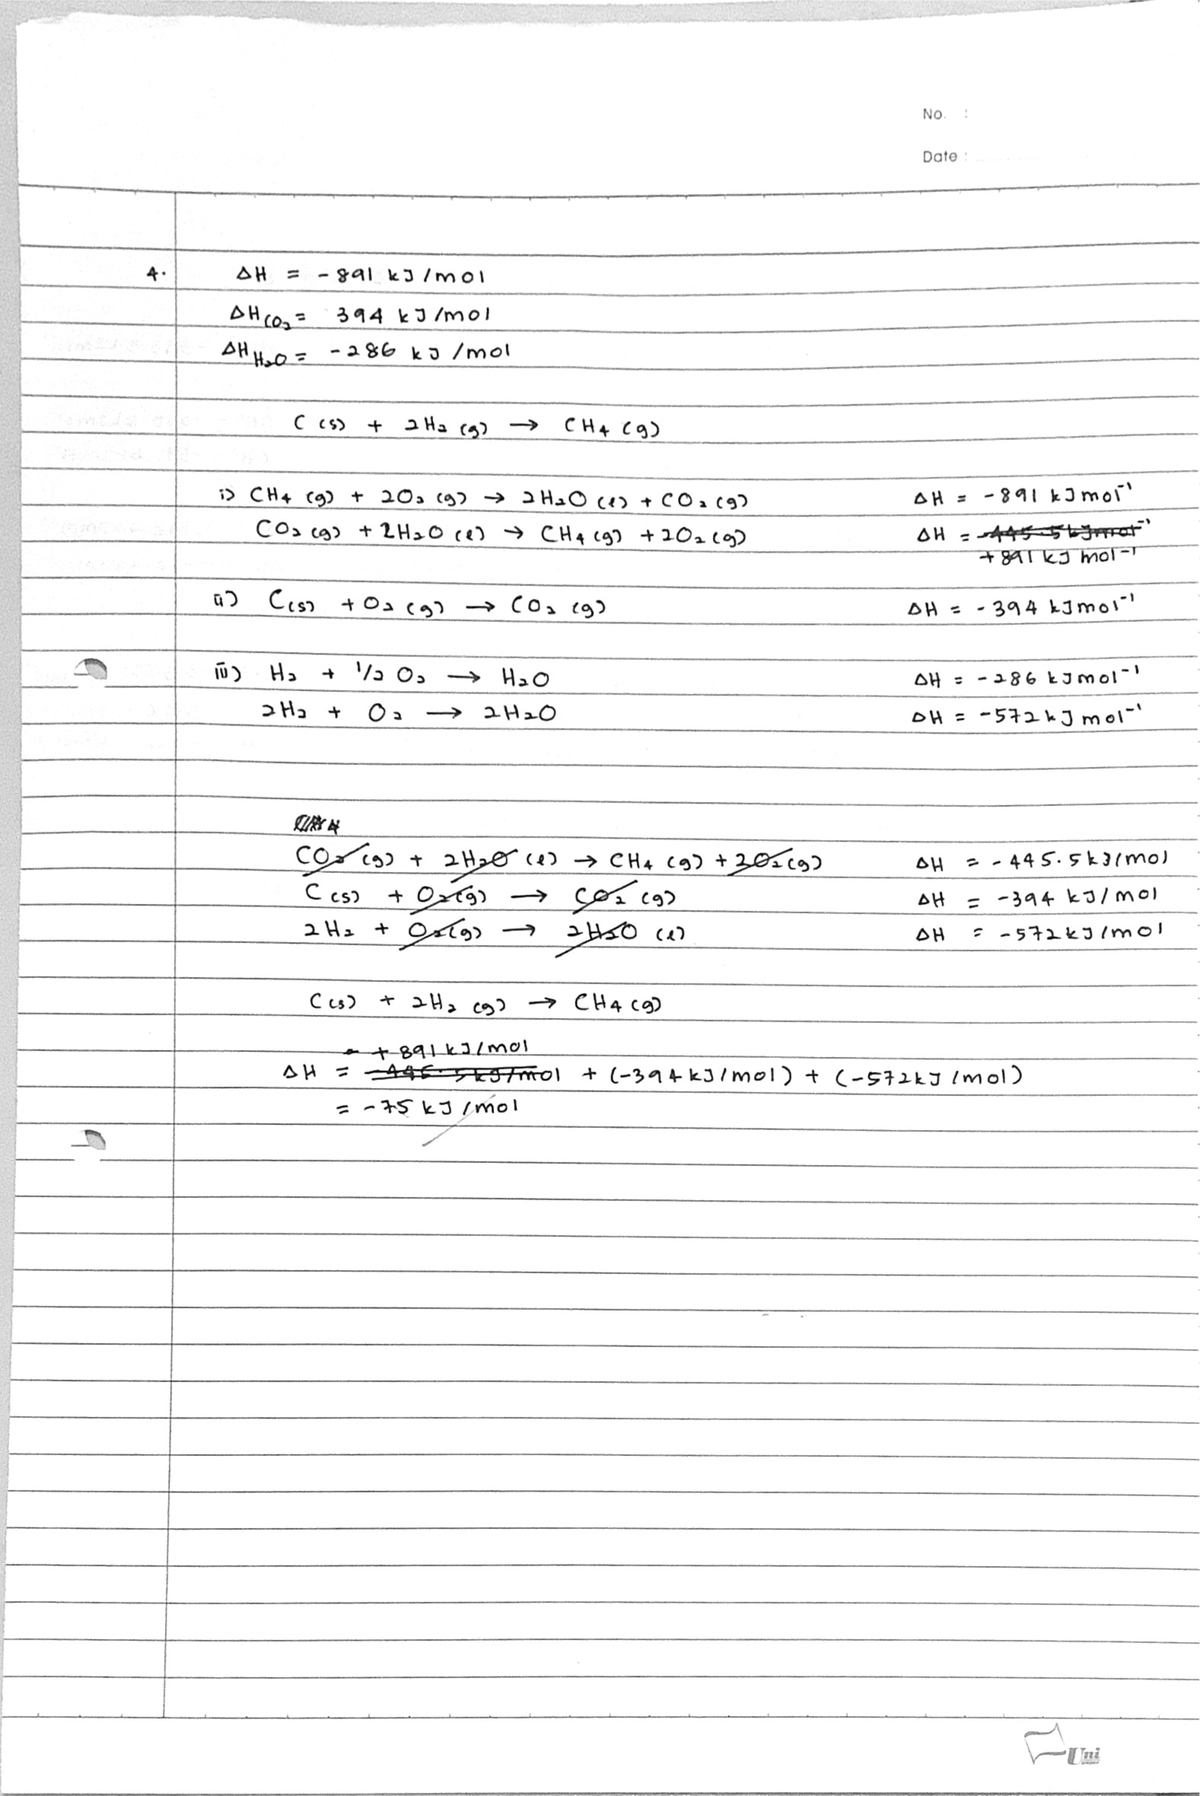 No. :
Date :
4. ΔH = -891 kJ/mol
ΔH CO₂ = 394 kJ/mol
ΔH H₂O = -286 kJ/mol
C(s) + 2H₂(g) → CH₄(g)
i) CH₄(g) + 2O₂(g) → 2H₂O(l) + CO₂(g) ΔH = -891 kJmol⁻¹
CO₂(g) + 2H₂O(l) → CH₄(g) + 2O₂(g) ΔH = -445.5kJmol⁻¹
+891 kJ mol⁻¹
ii) C(s) + O₂(g) → CO₂(g) ΔH = -394 kJmol⁻¹
iii) H₂ + 1/2 O₂ → H₂O ΔH = -286 kJmol⁻¹
2H₂ + O₂ → 2H₂O ΔH = -572kJmol⁻¹
CO₂(g) + 2H₂O(l) → CH₄(g) + 2O₂(g) ΔH = -445.5kJ/mol
C(s) + O₂(g) → CO₂(g) ΔH = -394 kJ/mol
2H₂ + O₂(g) → 2H₂O(l) ΔH = -572kJ/mol
C(s) + 2H₂(g) → CH₄(g)
+891kJ/mol
ΔH = -445.5kJ/mol + (-394kJ/mol) + (-572kJ/mol)
= -75 kJ/mol
Uni